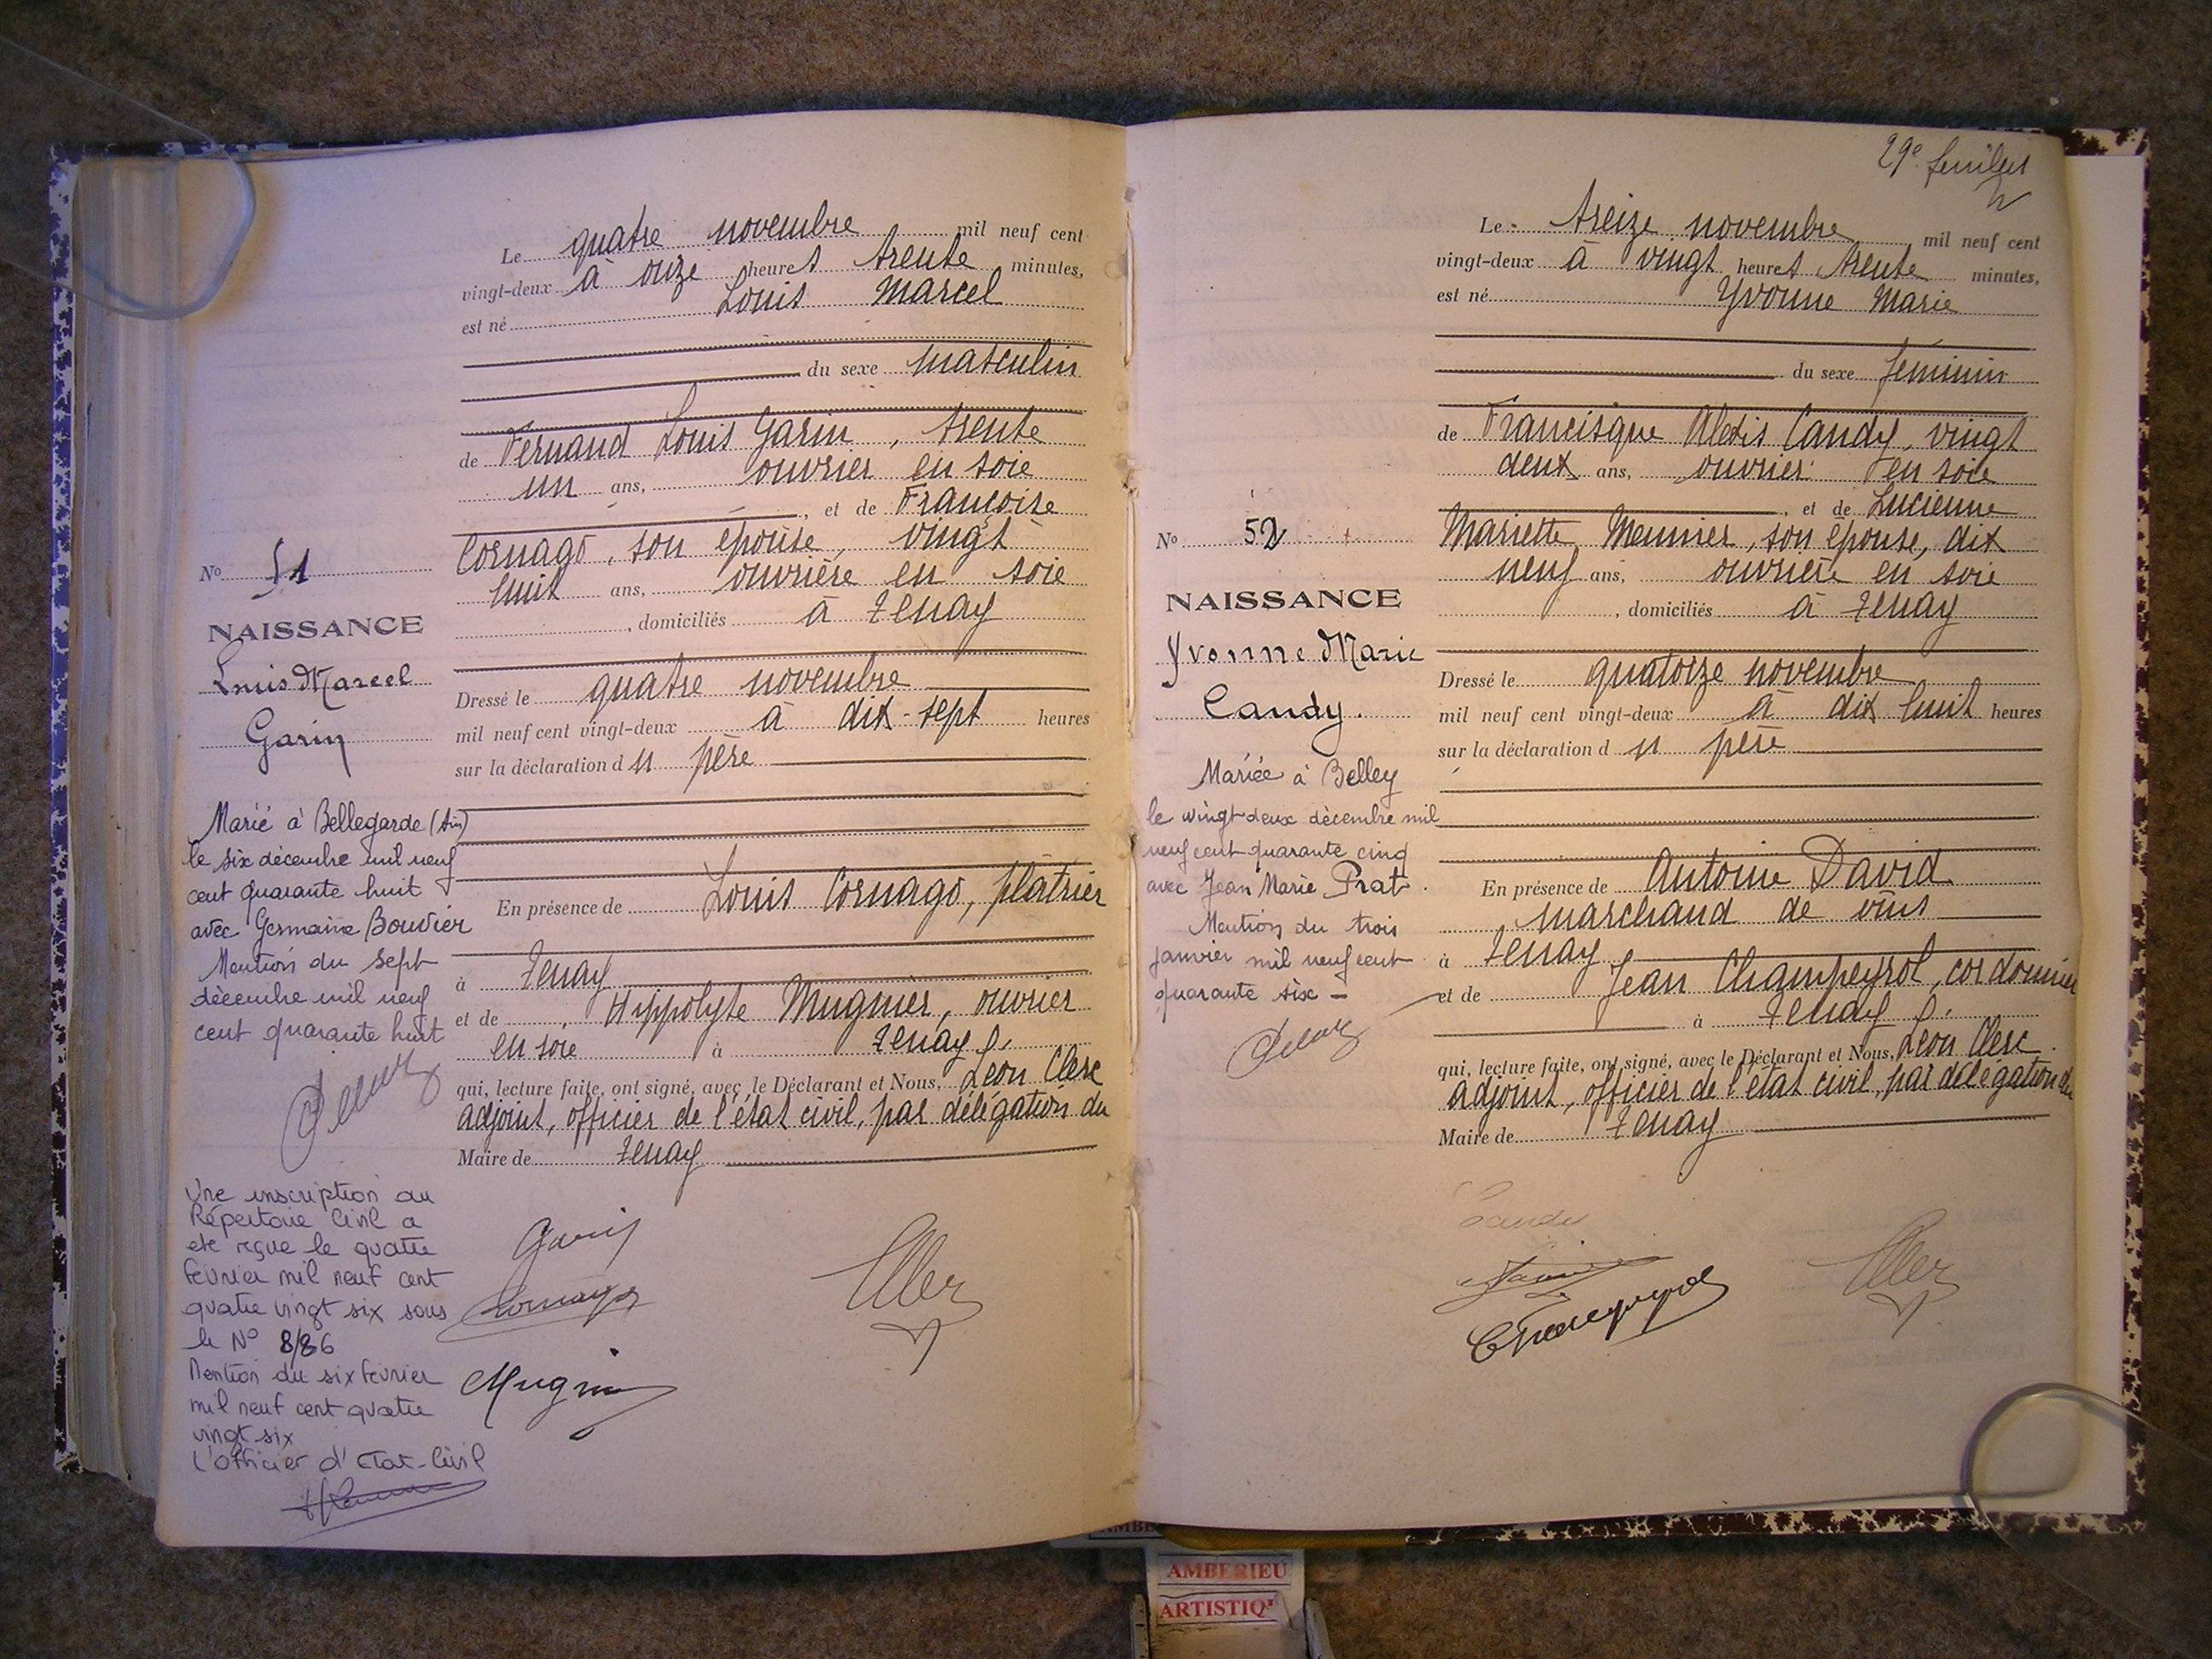 Le quatre novembre mil neuf cent
vingt-deux à onze heures trente minutes,
est né Louis Marcel
du sexe masculin
de Fernand Louis Garin, trente
un ans, ouvrier en soie
, et de Françoise
Cornago, son épouse, vingt
huit ans, ouvrière en soie
, domiciliés à Tenay
Dressé le quatre novembre
mil neuf cent vingt-deux à dix-sept heures
sur la déclaration du père
En présence de Louis Cornago, plâtrier
à Tenay
et de Hippolyte Mugnier, ouvrier
en soie à Tenay
qui, lecture faite, ont signé, avec le Déclarant et Nous, Léon Clerc
adjoint, officier de l'état civil, par délégation du
Maire de Tenay
No 51
NAISSANCE
Louis Marcel
Garin
Marié à Bellegarde (Ain)
le six décembre mil neuf
cent quarante huit
avec Germaine Bouvier
Mention du sept
décembre mil neuf
cent quarante huit
Une inscription au
Répertoire Civil a
été reçue le quatre
février mil neuf cent
quatre vingt six sous
le N° 8/86
Mention du six février
mil neuf cent quatre
vingt six
L'officier d'Etat-Civil
Garin
Cornago
Mugnier
29e feuillet
Le treize novembre mil neuf cent
vingt-deux à vingt heures trente minutes,
est né Yvonne Marie
du sexe féminin
de Francisque Alexis Candy, vingt
deux ans, ouvrier en soie
, et de Lucienne
Mariette Meunier, son épouse, dix
neuf ans, ouvrière en soie
, domiciliés à Tenay
Dressé le quatorze novembre
mil neuf cent vingt-deux à dix huit heures
sur la déclaration du père
En présence de Antoine David
marchand de vins
à Tenay
et de Jean Champeyrol, cordonnier
à Tenay
qui, lecture faite, ont signé, avec le Déclarant et Nous, Léon Clerc
adjoint, officier de l'état civil, par délégation du
Maire de Tenay
No 52
NAISSANCE
Yvonne Marie
Candy.
Mariée à Belley
le vingt-deux décembre mil
neuf cent quarante cinq
avec Jean Marie Prat.
Mention du trois
janvier mil neuf cent
quarante six -
Candy
Champeyrol
AMBERIEU
ARTISTIQ